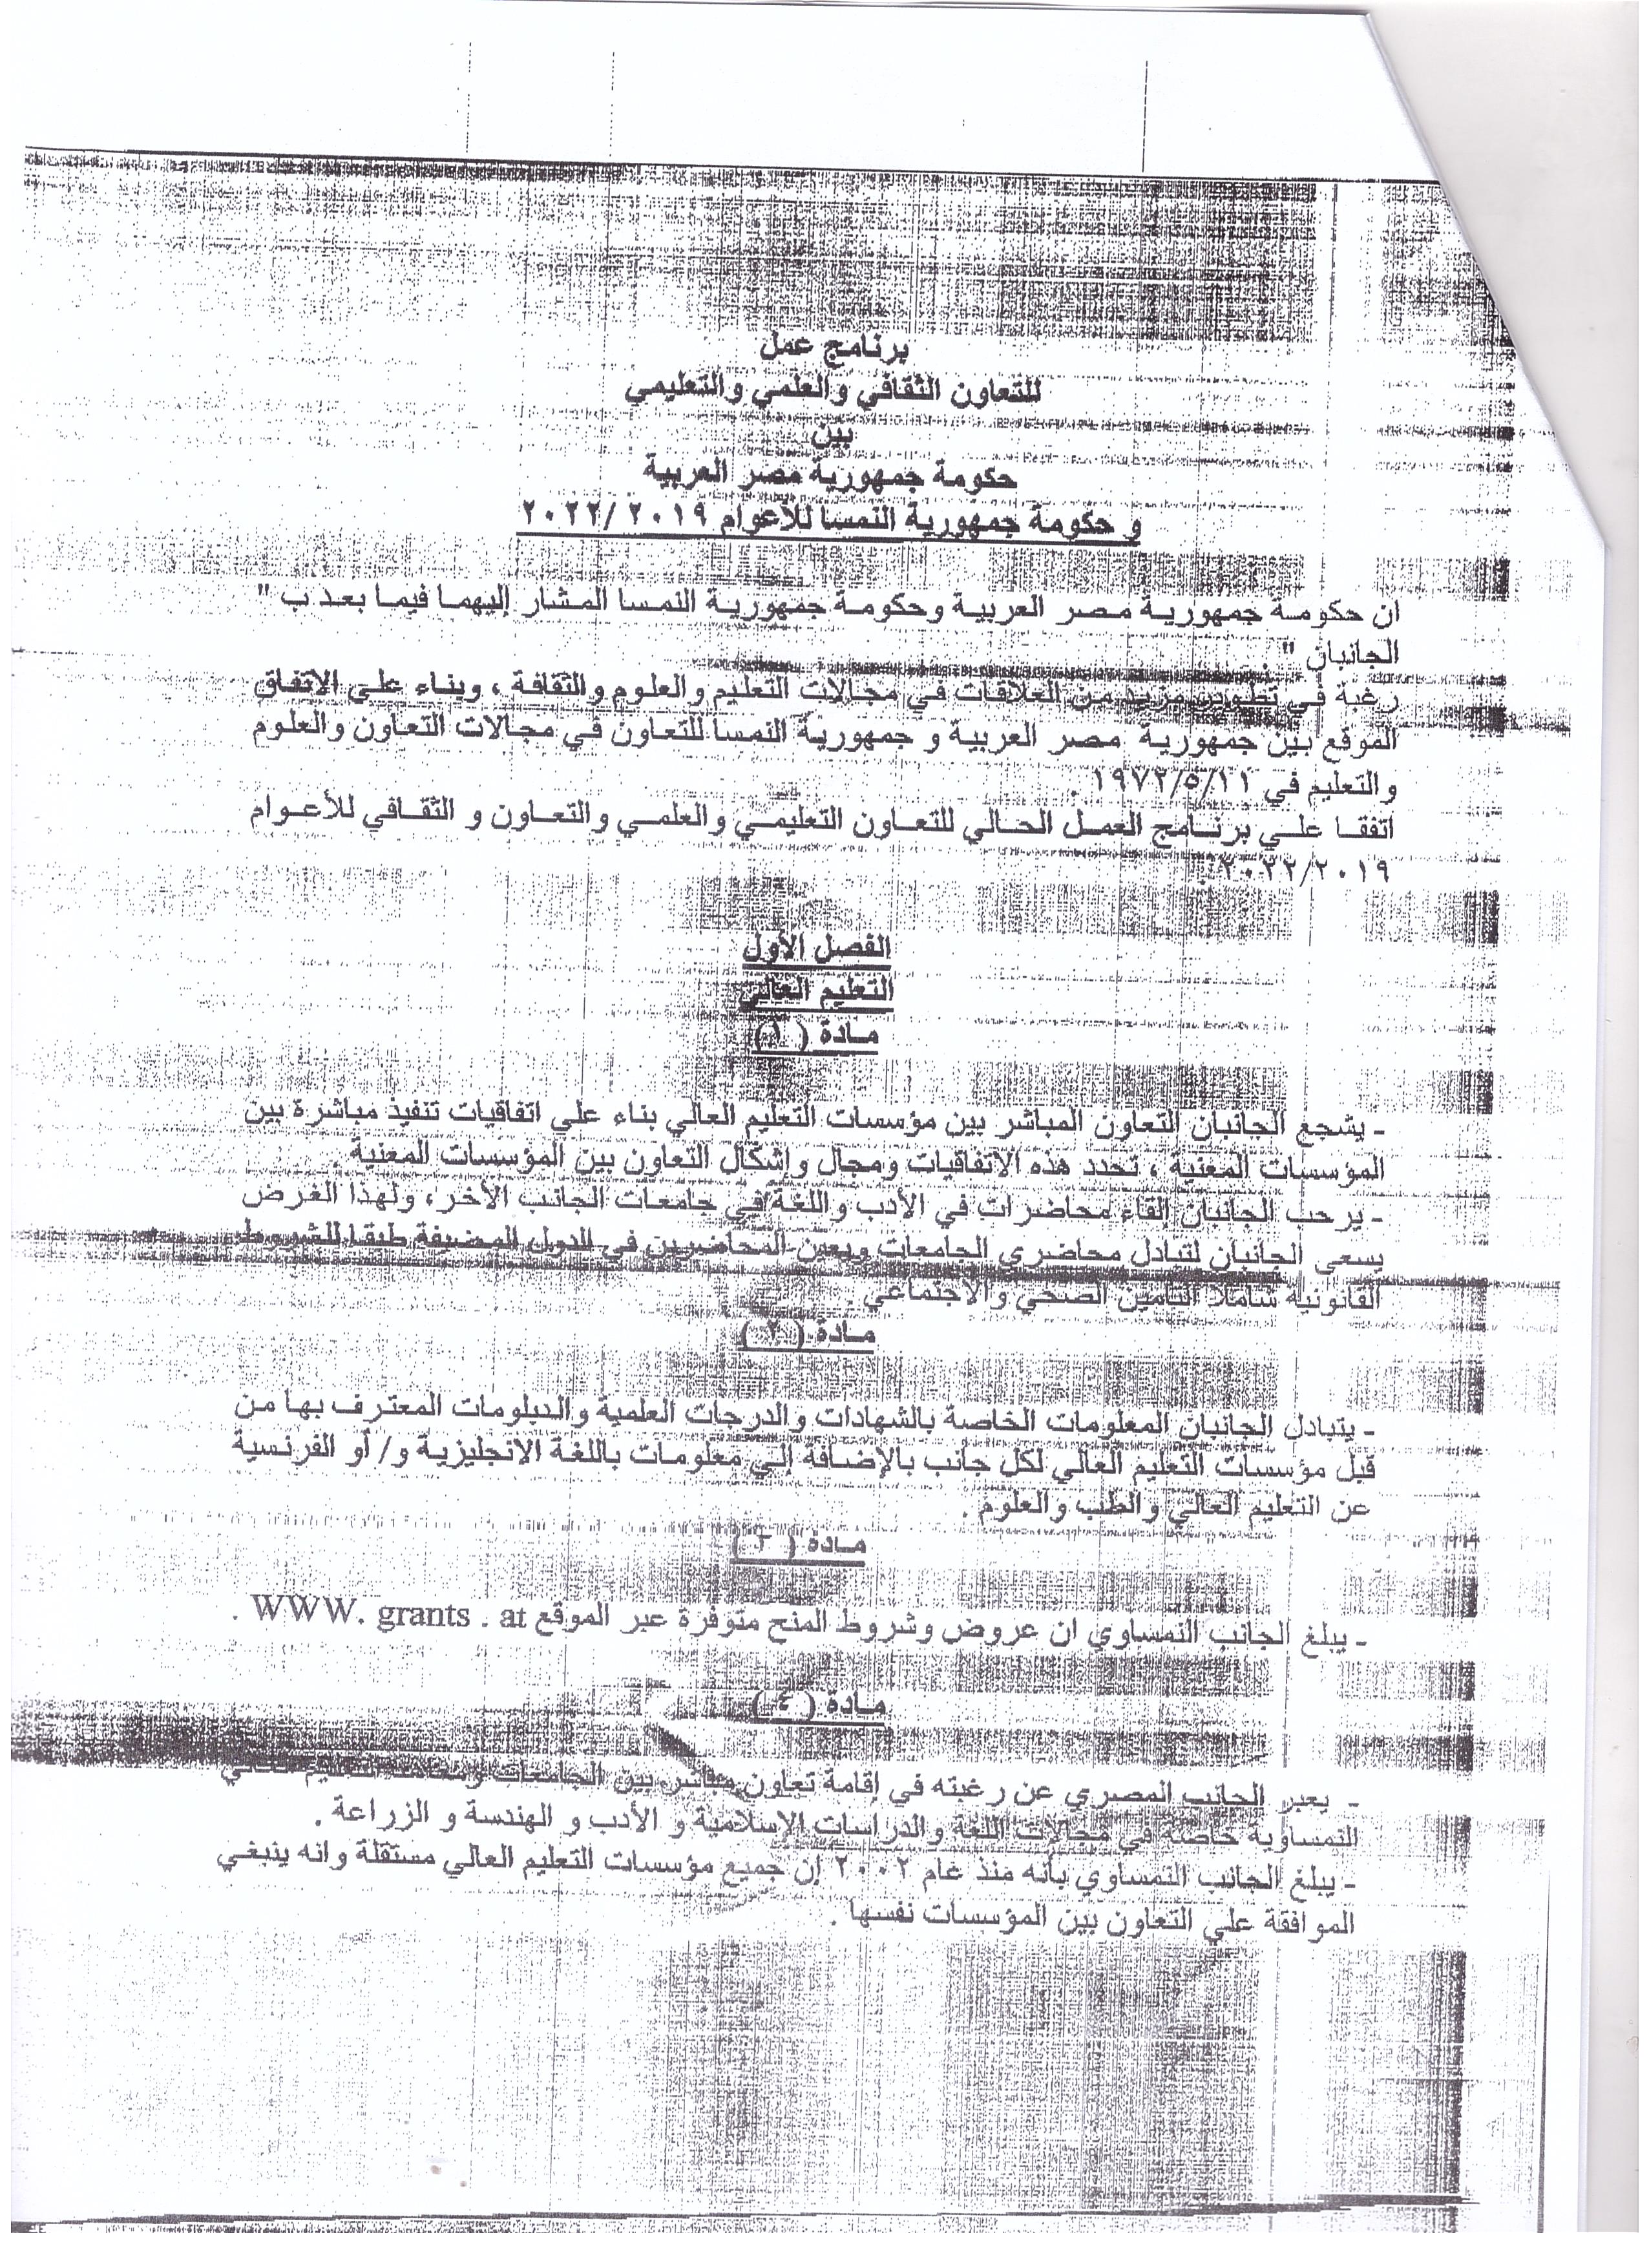 برنامج عمل
للتعاون الثقافي والعلمي والتعليمي
بين
حكومة جمهورية مصر العربية
و حكومة جمهورية النمسا للأعوام ٢٠١٩ /٢٠٢٢
ان حكومة جمهورية مصر العربية وحكومة جمهورية النمسا المشار إليهما فيما بعد ب "
الجانبان " .
رغبة في تطوير مزيد من العلاقات في مجالات التعليم والعلوم والثقافة ، وبناء علي الاتفاق
الموقع بين جمهورية مصر العربية و جمهورية النمسا للتعاون في مجالات التعاون والعلوم
والتعليم في ١٩٧٢/٥/١١ .
اتفقا علي برنامج العمل الحالي للتعاون التعليمي والعلمي والتعاون و الثقافي للأعوام
٢٠٢٢/٢٠١٩ .
الفصل الأول
التعليم العالي
مادة ( ١ )
- يشجع الجانبان التعاون المباشر بين مؤسسات التعليم العالي بناء علي اتفاقيات تنفيذ مباشرة بين
المؤسسات المعنية ، تحدد هذه الاتفاقيات ومجال وإشكال التعاون بين المؤسسات المعنية .
- يرحب الجانبان القاء محاضرات في الأدب واللغة في جامعات الجانب الأخر ، ولهذا الغرض
يسعى الجانبان لتبادل محاضري الجامعات ويعين المحاضرين في الدول المضيفة طبقا للشروط
القانونية شاملا التامين الصحي والاجتماعي .
مادة ( ٢ )
- يتبادل الجانبان المعلومات الخاصة بالشهادات والدرجات العلمية والدبلومات المعترف بها من
قبل مؤسسات التعليم العالي لكل جانب بالإضافة إلي معلومات باللغة الانجليزية و/ أو الفرنسية
عن التعليم العالي والطب والعلوم .
مادة ( ٣ )
- يبلغ الجانب النمساوي ان عروض وشروط المنح متوفرة عبر الموقع WWW. grants . at .
مادة ( ٤ )
- يعبر الجانب المصري عن رغبته في إقامة تعاون مباشر بين الجامعات ومعاهد التعليم العالي
النمساوية خاصة في مجالات اللغة والدراسات الإسلامية و الأدب و الهندسة و الزراعة .
- يبلغ الجانب النمساوي بأنه منذ عام ٢٠٠٢ إن جميع مؤسسات التعليم العالي مستقلة وانه ينبغي
الموافقة علي التعاون بين المؤسسات نفسها .